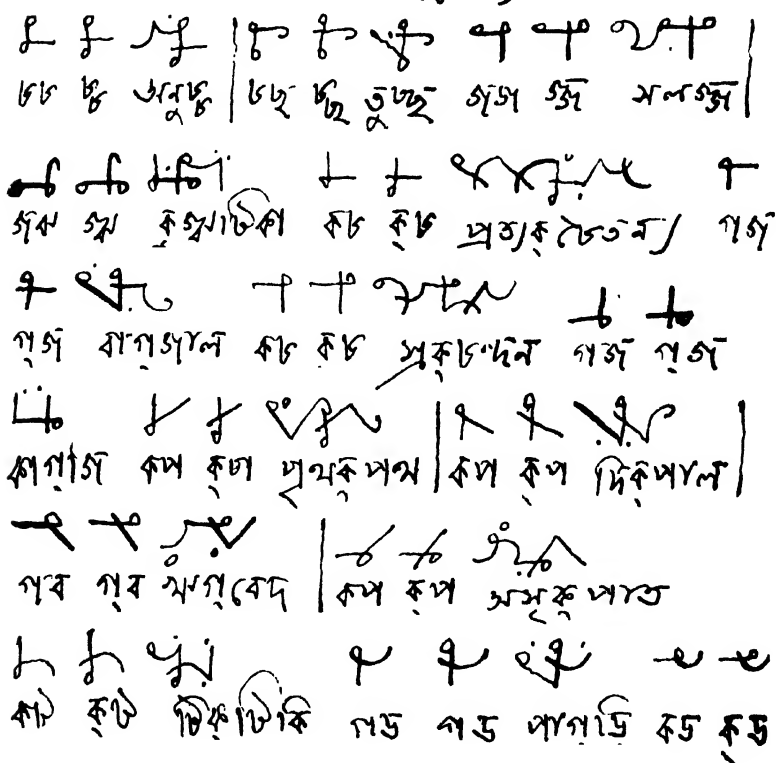 চচ চ্চ অনুচ্চ | চছ চ্ছ তুচ্ছ জজ জ্জ সলজ্জ |
জঝ জ্ঝ কুজ্ঝটিকা কচ ক্‌চ প্রত্যক্‌চৈতন্য গজ
গ্‌জ বাগ্‌জাল কচ ক্‌চ স্রক্‌চন্দন গজ গ্‌জ
কাগ্‌জি কপ ক্‌প পৃথক্‌পথ | কপ ক্‌প দিক্‌পাল |
গব গ্‌ব ঋগ্‌বেদ | কপ ক্‌প অসৃক্‌পাত
কট ক্‌ট টিক্‌টিকি গড গ্‌ড পাগ্‌ড়ি কড ক্‌ড